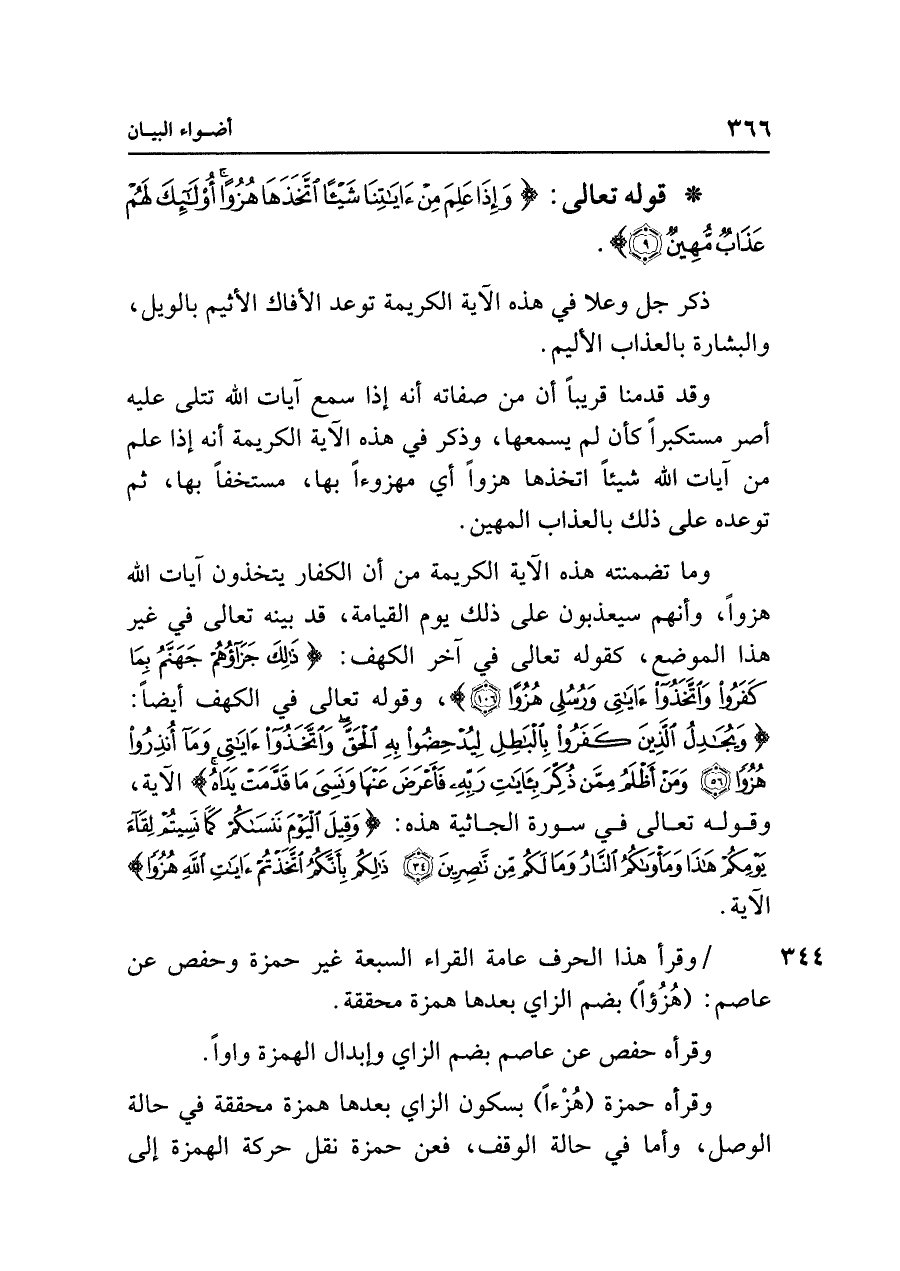 ٣٦٦ أضـواء البيـان
* قوله تعالى: ﴿ وَإِذَا عَلِمَ مِنْ ءَايَٰتِنَا شَيْـًٔا ٱتَّخَذَهَا هُزُوًا ۚ أُو۟لَٰٓئِكَ لَهُمْ
عَذَابٌ مُّهِينٌ ٩ ﴾ .
ذكر جل وعلا في هذه الآية الكريمة توعد الأفاك الأثيم بالويل،
والبشارة بالعذاب الأليم.
وقد قدمنا قريباً أن من صفاته أنه إذا سمع آيات الله تتلى عليه
أصر مستكبراً كأن لم يسمعها، وذكر في هذه الآية الكريمة أنه إذا علم
من آيات الله شيئاً اتخذها هزواً أي مهزوءاً بها، مستخفاً بها، ثم
توعده على ذلك بالعذاب المهين.
وما تضمنته هذه الآية الكريمة من أن الكفار يتخذون آيات الله
هزواً، وأنهم سيعذبون على ذلك يوم القيامة، قد بينه تعالى في غير
هذا الموضع، كقوله تعالى في آخر الكهف: ﴿ ذَٰلِكَ جَزَآؤُهُمْ جَهَنَّمُ بِمَا
كَفَرُوا۟ وَٱتَّخَذُوٓا۟ ءَايَٰتِى وَرُسُلِى هُزُوًا ١٠٦ ﴾، وقوله تعالى في الكهف أيضاً:
﴿ وَيُجَٰدِلُ ٱلَّذِينَ كَفَرُوا۟ بِٱلْبَٰطِلِ لِيُدْحِضُوا۟ بِهِ ٱلْحَقَّ ۖ وَٱتَّخَذُوٓا۟ ءَايَٰتِى وَمَآ أُنذِرُوا۟
هُزُوًا ٥٦ وَمَنْ أَظْلَمُ مِمَّن ذُكِّرَ بِـَٔايَٰتِ رَبِّهِۦ فَأَعْرَضَ عَنْهَا وَنَسِىَ مَا قَدَّمَتْ يَدَاهُ ۚ ﴾ الآية،
وقولـه تعالـى فـي سـورة الجـاثية هذه: ﴿ وَقِيلَ ٱلْيَوْمَ نَنسَىٰكُمْ كَمَا نَسِيتُمْ لِقَآءَ
يَوْمِكُمْ هَٰذَا وَمَأْوَىٰكُمُ ٱلنَّارُ وَمَا لَكُم مِّن نَّٰصِرِينَ ٣٤ ذَٰلِكُم بِأَنَّكُمُ ٱتَّخَذْتُمْ ءَايَٰتِ ٱللَّهِ هُزُوًا ﴾
الآية.
٣٤٤ /وقرأ هذا الحرف عامة القراء السبعة غير حمزة وحفص عن
عاصم: (هُزُؤاً) بضم الزاي بعدها همزة محققة.
وقرأه حفص عن عاصم بضم الزاي وإبدال الهمزة واواً.
وقرأه حمزة (هُزْءاً) بسكون الزاي بعدها همزة محققة في حالة
الوصل، وأما في حالة الوقف، فعن حمزة نقل حركة الهمزة إلى